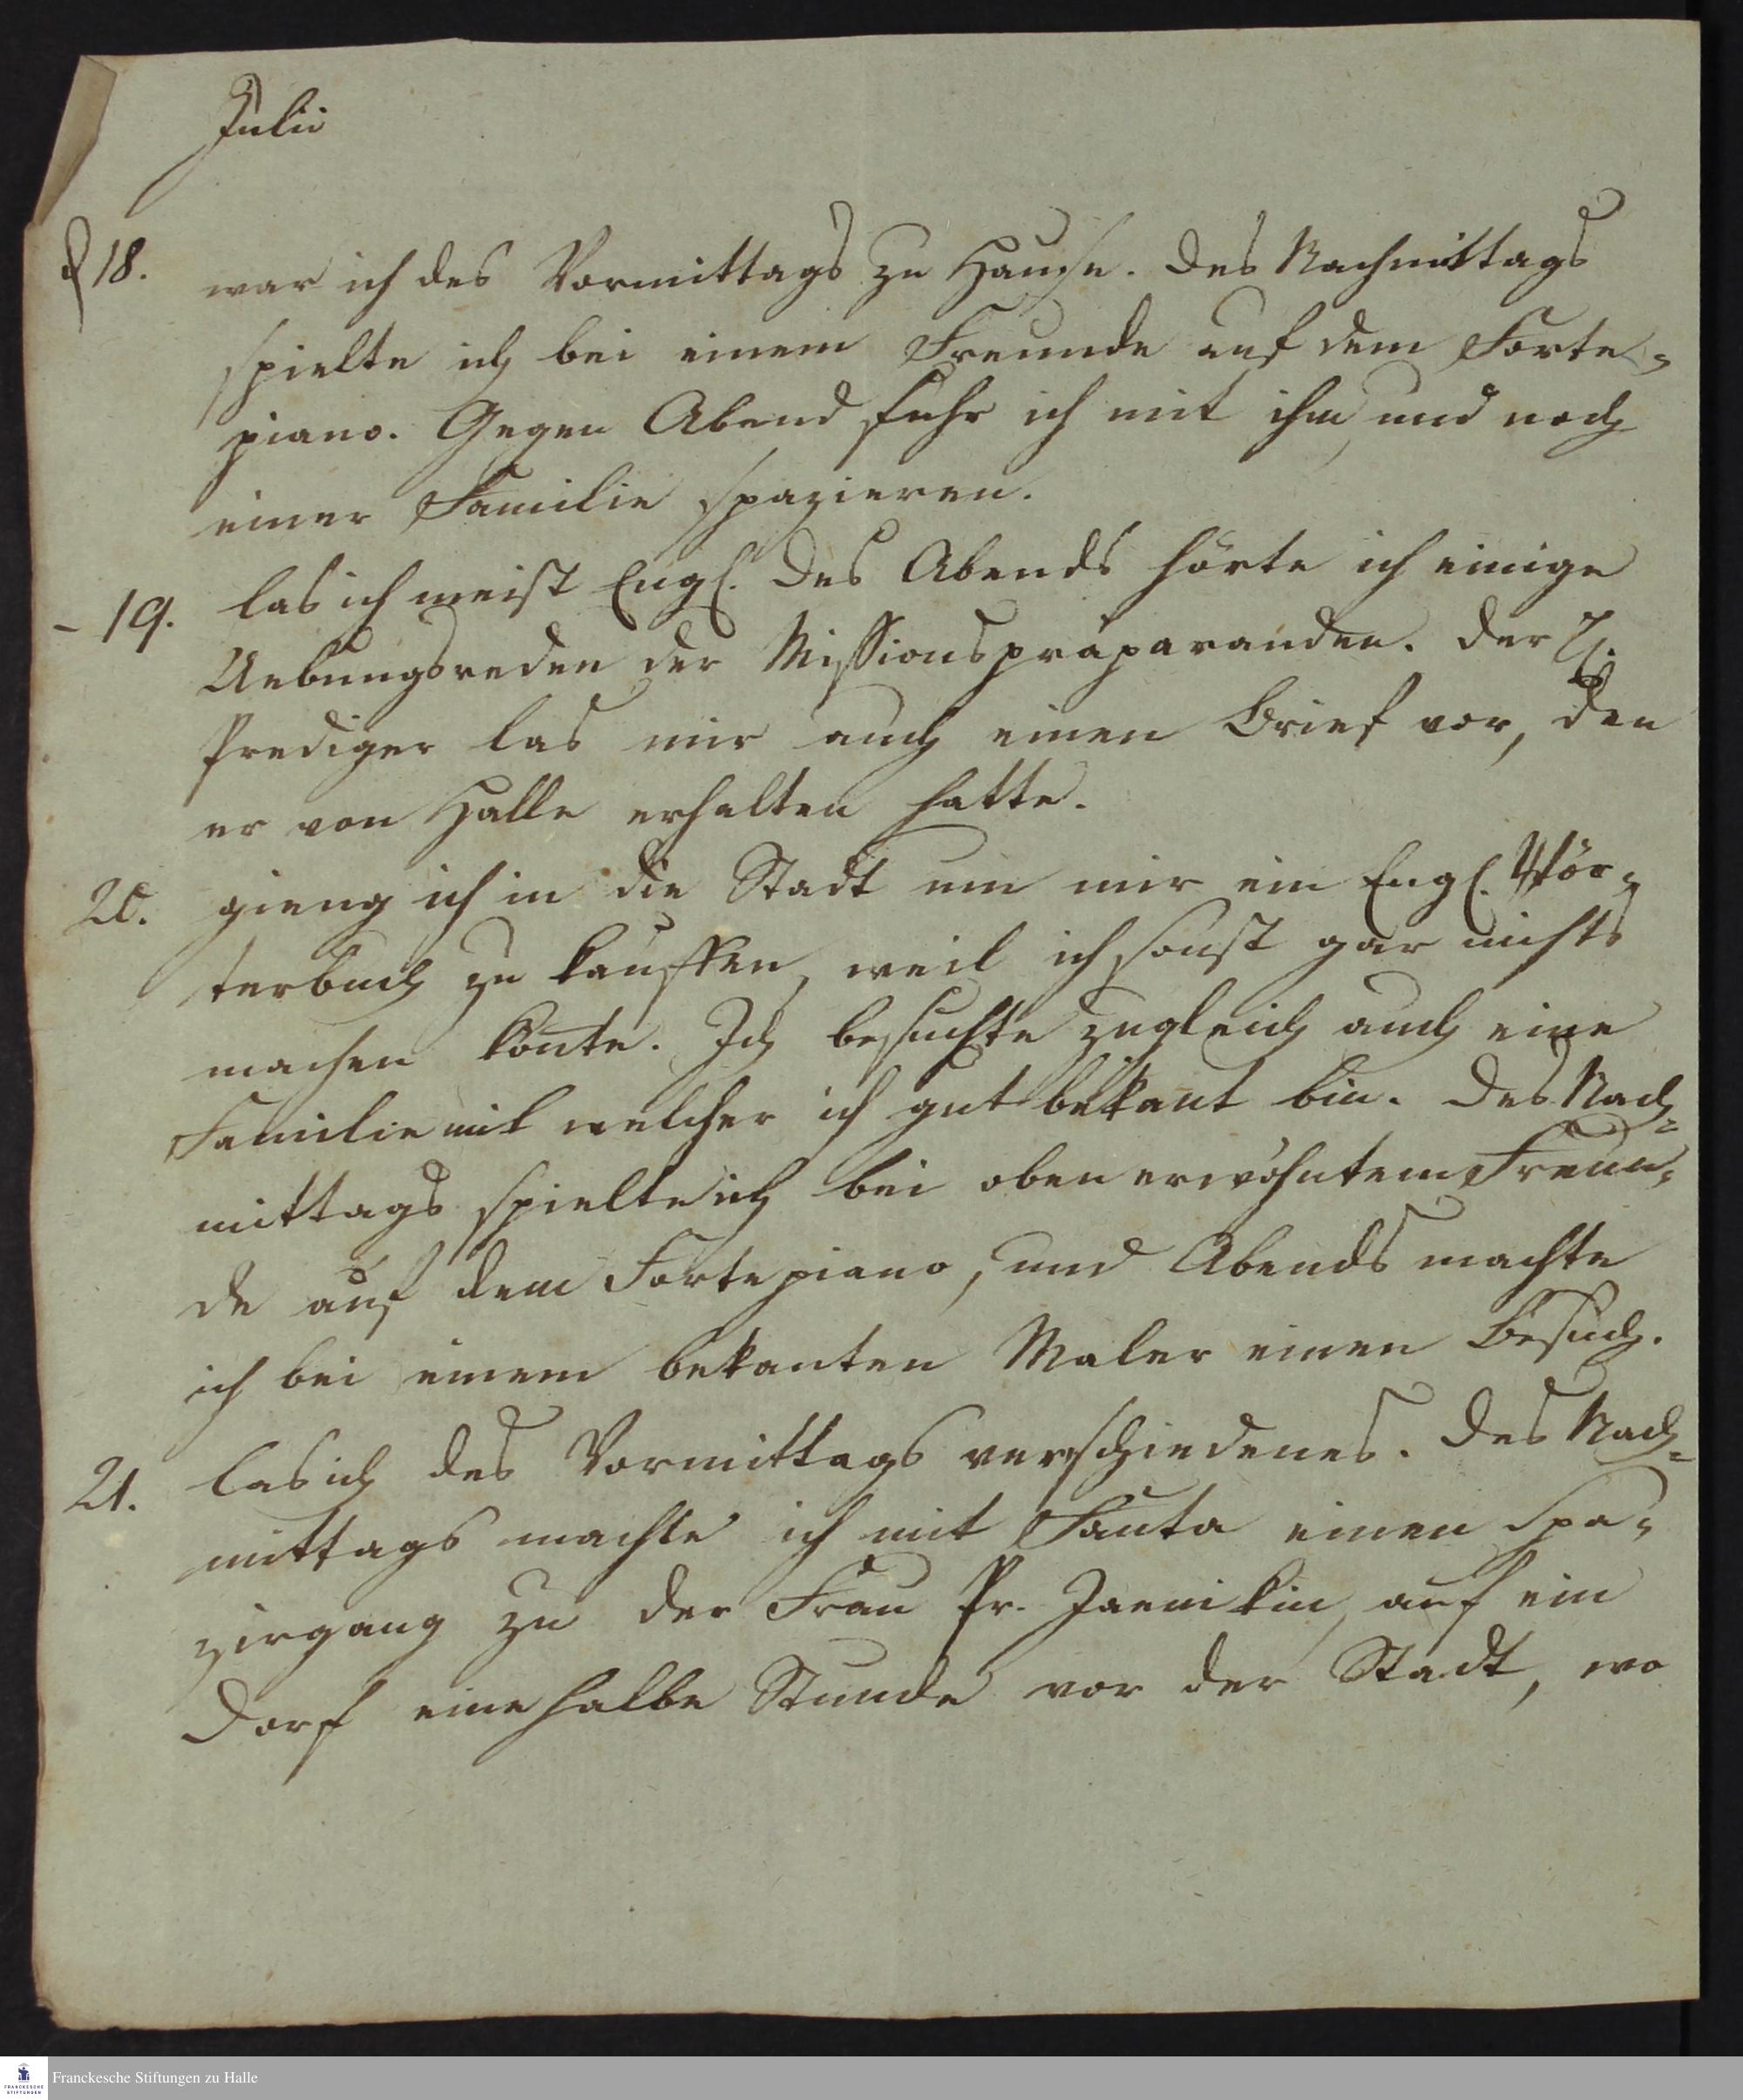 Julii
d 18. war ich des Vormittags zu Hause. Des Nachmittags
spielte ich bei einem Freunde auf dem Forte-
piano. Gegen Abend fuhr ich mit ihm und noch
einer Familie spazieren.
- 19. las ich meist Engl. Des Abends hörte ich einige
Uebungsreden der Missionspräparanden. Der H.
Prediger las mir auch einen Brief vor, den
er von Halle erhalten hatte.
20. gieng ich in die Stadt um mir ein Engl. Wör-
terbuch zu kauffen, weil ich sonst gar nichts
machen konte. Ich besuchte zugleich auch eine
Familie mit welcher ich gut bekant bin. Des Nach-
mittags spielte ich bei oben erwöhntem Freun-
de auf dem Fortepiano, und Abends machte
ich bei einem bekanten Maler einen Besuch.
21. las ich des Vormittags verschiedenes. Des Nach-
mittags machte ich mit einen Spa-
zirgang zu der Frau Pr. Jaenikin, auf ein
Dorf eine halbe Stunde vor der Stadt, wo
FRANCKESCHE
STIFTUNGEN
Franckesche Stiftungen zu Halle